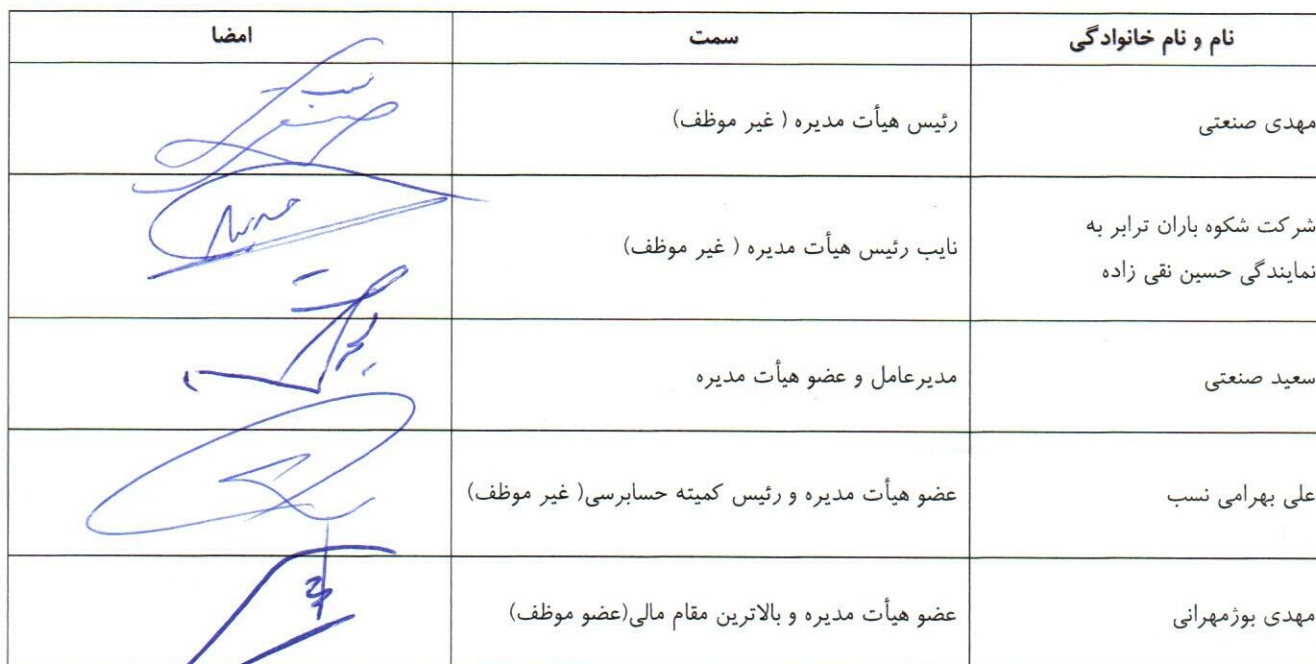 نام و نام خانوادگی سمت امضا
مهدی صنعتی رئیس هیأت مدیره ( غیر موظف)
شرکت شکوه باران ترابر به
نمایندگی حسین نقی زاده نایب رئیس هیأت مدیره ( غیر موظف)
سعید صنعتی مدیرعامل و عضو هیأت مدیره
علی بهرامی نسب عضو هیأت مدیره و رئیس کمیته حسابرسی( غیر موظف)
مهدی بوژمهرانی عضو هیأت مدیره و بالاترین مقام مالی(عضو موظف)